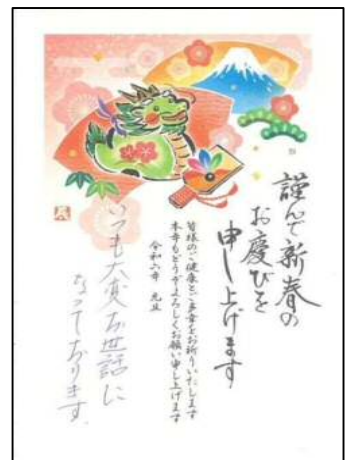 謹んで新春の
お慶びを
申し上げます
皆様のご健康とご多幸をお祈りいたします
本年もどうぞよろしくお願い申し上げます
令和六年 元旦
いつも大変お世話に
なっております.